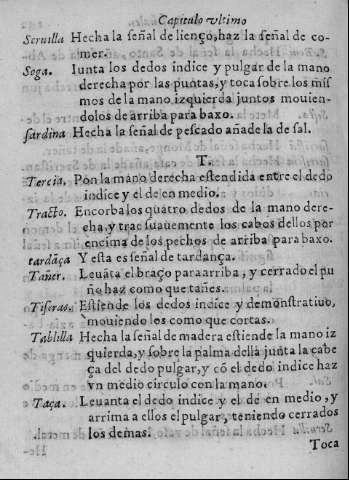 Capitulo vltimo
Seruilla Hecha la señal de lienço, haz la señal de co-
mer.
Sega. Iunta los dedos indice y pulgar de la mano
derecha por las puntas, y toca sobre los mis
mos de la mano izquierda juntos mouien-
dolos de arriba para baxo.
sardina Hecha la señal de pescado añade la de sal.
T.
Tercia. Pon la mano derecha estendida entre el dedo
indice y el de en medio.
Tracto. Encorba los quatro dedos de la mano dere-
cha, y trae suauemente los cabos dellos por
encima de los pechos de arriba para baxo.
tardãça Y esta es señal de tardança.
Tañer. Leuãta el braço para arriba, y cerrado el pu
ño haz como que tañes.
Tiseras. Estiende los dedos indice y demonstratiuo,
mouiendo los como que cortas.
Tablilla Hecha la señal de madera estiende la mano iz
quierda, y sobre la palma della junta la cabe
ça del dedo pulgar, y cõ el dedo indice haz
vn medio circulo con la mano.
Taça. Leuanta el dedo indice y el de en medio, y
arrima a ellos el pulgar, teniendo cerrados
los demas.
Toca